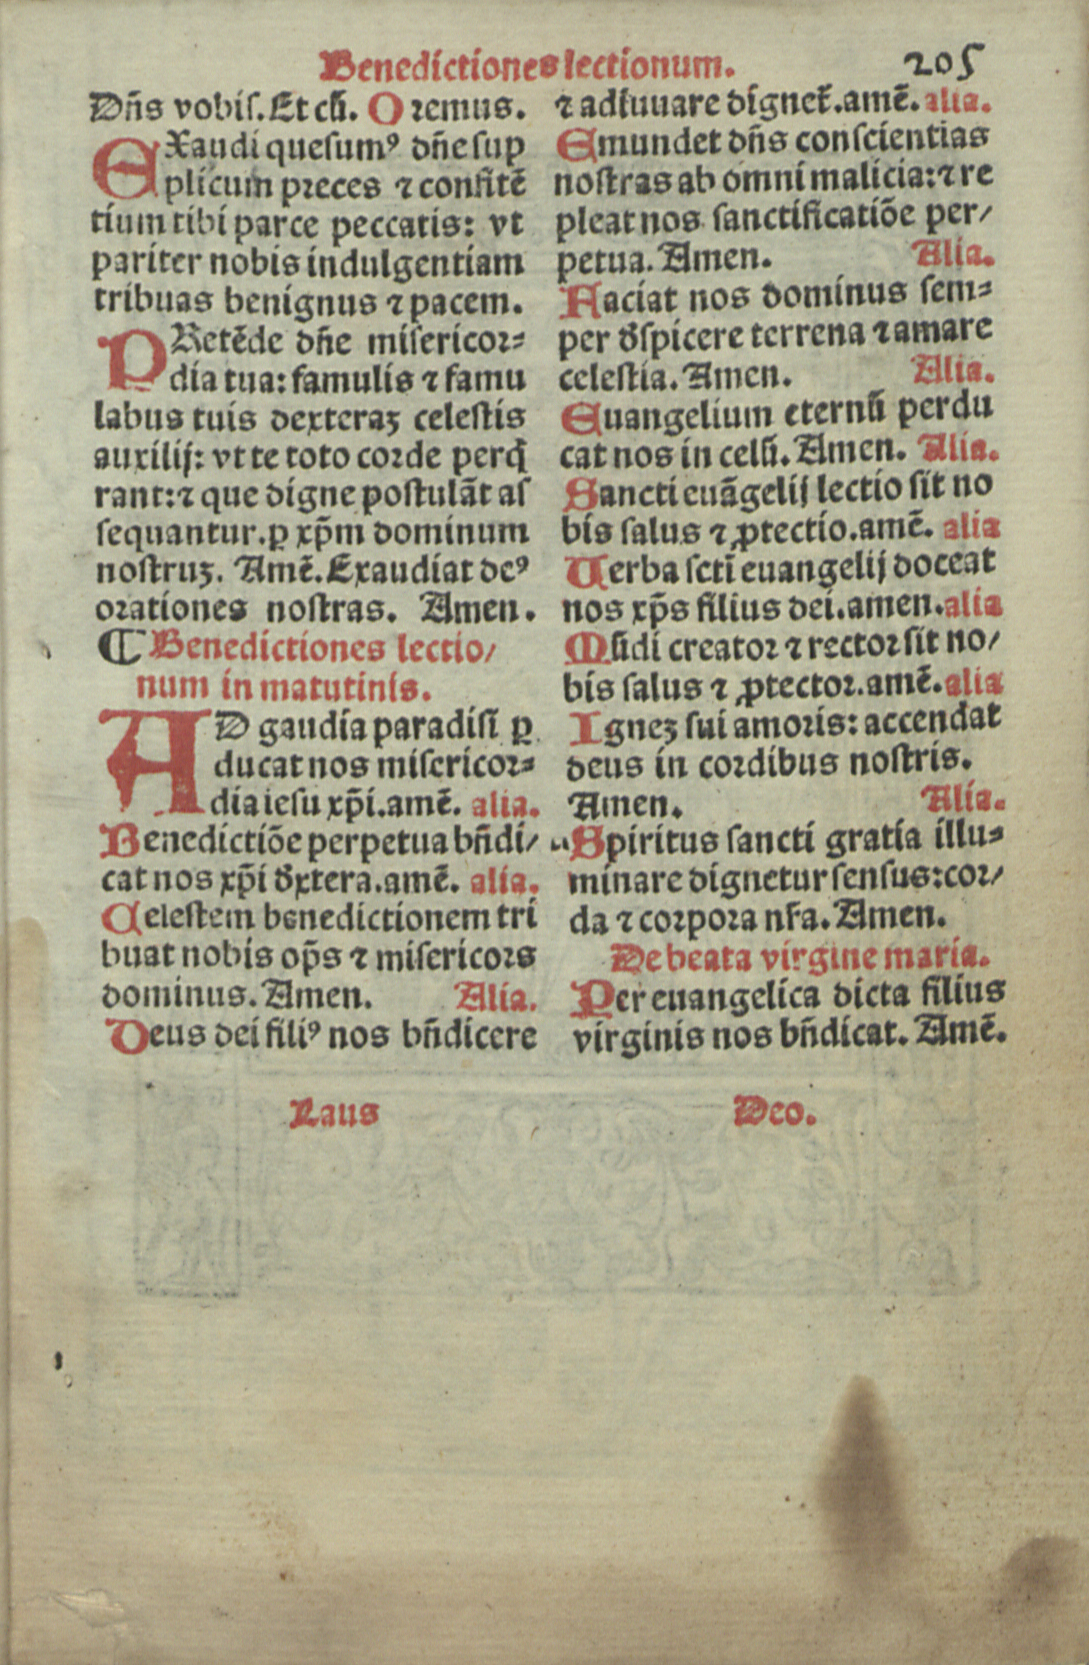 Benedictiones lectionum. 205
Dn̄s vobiſ. Et cū. Oremus.
EXaudi queſumꝰ dn̄e ſup
plicum preces ⁊ confitē
tium tibi parce peccatis: vt
pariter nobis indulgentiam
tribuas benignus ⁊ pacem.
PRetēde dn̄e miſericor⸗
dia tua: famulis ⁊ famu
labus tuis dexteraꝫ celeſtis
auxilij: vt te toto corde perq̄
rant: ⁊ que digne poſtulāt aſ
ſequantur. ꝑ xp̄m dominum
noſtruꝫ. Amē. Exaudiat deꝰ
orationes noſtras. Amen.
¶ Benedictiones lectio/
num in matutinis.
AD gaudia paradiſi ꝑ
ducat nos miſericor⸗
dia ieſu xp̄i. amē. alia.
Benedictiōe perpetua bn̄di/
cat nos xp̄i dextera. amē. alia.
Celeſtem benedictionem tri
buat nobis op̄s ⁊ miſericors
dominus. Amen. Alia.
Deus dei filiꝰ nos bn̄dicere
⁊ adiuuare dignet̄. amē. alia.
Emundet dn̄s conſcientias
noſtras ab omni malicia: ⁊ re
pleat nos ſanctificatiōe per/
petua. Amen. Alia.
Faciat nos dominus ſem⸗
per deſpicere terrena ⁊ amare
celeſtia. Amen. Alia.
Euangelium eternū perdu
cat nos in celū. Amen. Alia.
Sancti euāgelij lectio ſit no
bis ſalus ⁊ ꝓtectio. amē. alia
Verba ſctī euangelij doceat
nos xp̄s filius dei. amen. alia
Mūdi creator ⁊ rector ſit no/
bis ſalus ⁊ ꝓtector. amē. alia
Igneꝫ ſui amoris: accendat
deus in cordibus noſtris.
Amen. Alia.
Spiritus ſancti gratia illu⸗
minare dignetur ſenſus: cor/
da ⁊ corpora nr̄a. Amen.
De beata virgine maria.
Per euangelica dicta filius
virginis nos bn̄dicat. Amē.
Laus Deo.